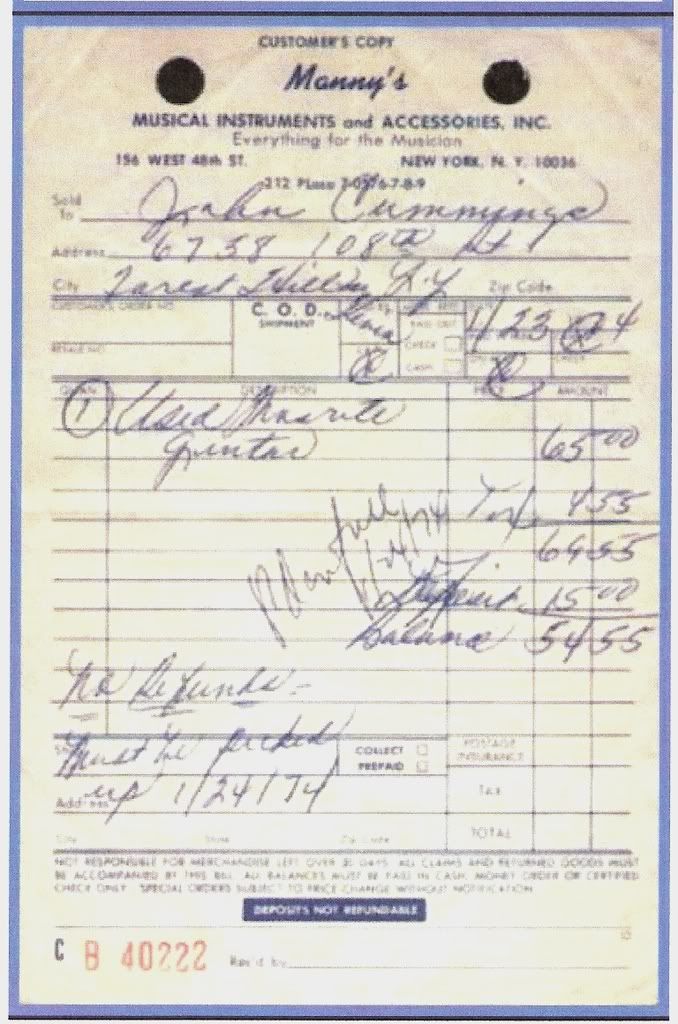 CUSTOMER'S COPY
Manny's
MUSICAL INSTRUMENTS and ACCESSORIES, INC.
Everything for the Musician
156 WEST 48th ST. NEW YORK, N. Y. 10036
212 Plaza 7-0576-7-8-9
Sold To John Cummings
Address 6758 108th St
City Forest Hills N.Y Zip Code
CUSTOMER'S ORDER NO. C. O. D. SHIPMENT
1/23 74
CHECK
CASH
QUAN. DESCRIPTION PRICE AMOUNT
1 Used Mosrite
guitar 65 00
Tax 4 55
69 55
Paid in full
1/24/74
Deposit 15 00
Balance 54 55
No Refunds -
Must be picked
COLLECT
PREPAID
POSTAGE
INSURANCE
Address up 1/24/74
TAX
City State Zip Code TOTAL
NOT RESPONSIBLE FOR MERCHANDISE LEFT OVER 30 DAYS. ALL CLAIMS AND RETURNED GOODS MUST
BE ACCOMPANIED BY THIS BILL. ALL BALANCES MUST BE PAID IN CASH, MONEY ORDER OR CERTIFIED
CHECK ONLY. SPECIAL ORDERS SUBJECT TO PRICE CHANGE WITHOUT NOTIFICATION.
DEPOSITS NOT REFUNDABLE
C B 40222 Rec'd by